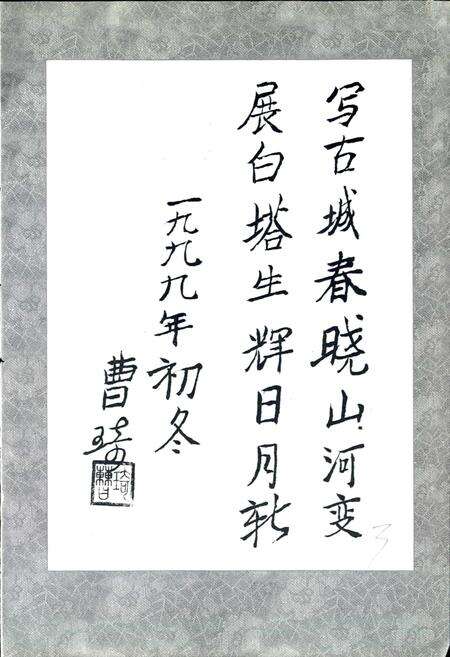 写古城春晓山河变
展白塔生辉日月新
一九九九年初冬
曹琦